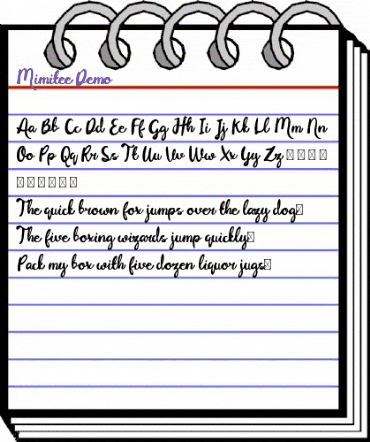 Mimitee Demo
Aa Bb Cc Dd Ee Ff Gg Hh Ii Jj Kk Ll Mm Nn
Oo Pp Qq Rr Ss Tt Uu Vv Ww Xx Yy Zz □ □ □ □
□ □ □ □ □ □
The quick brown fox jumps over the lazy dog□
The five boxing wizards jump quickly□
Pack my box with five dozen liquor jugs□